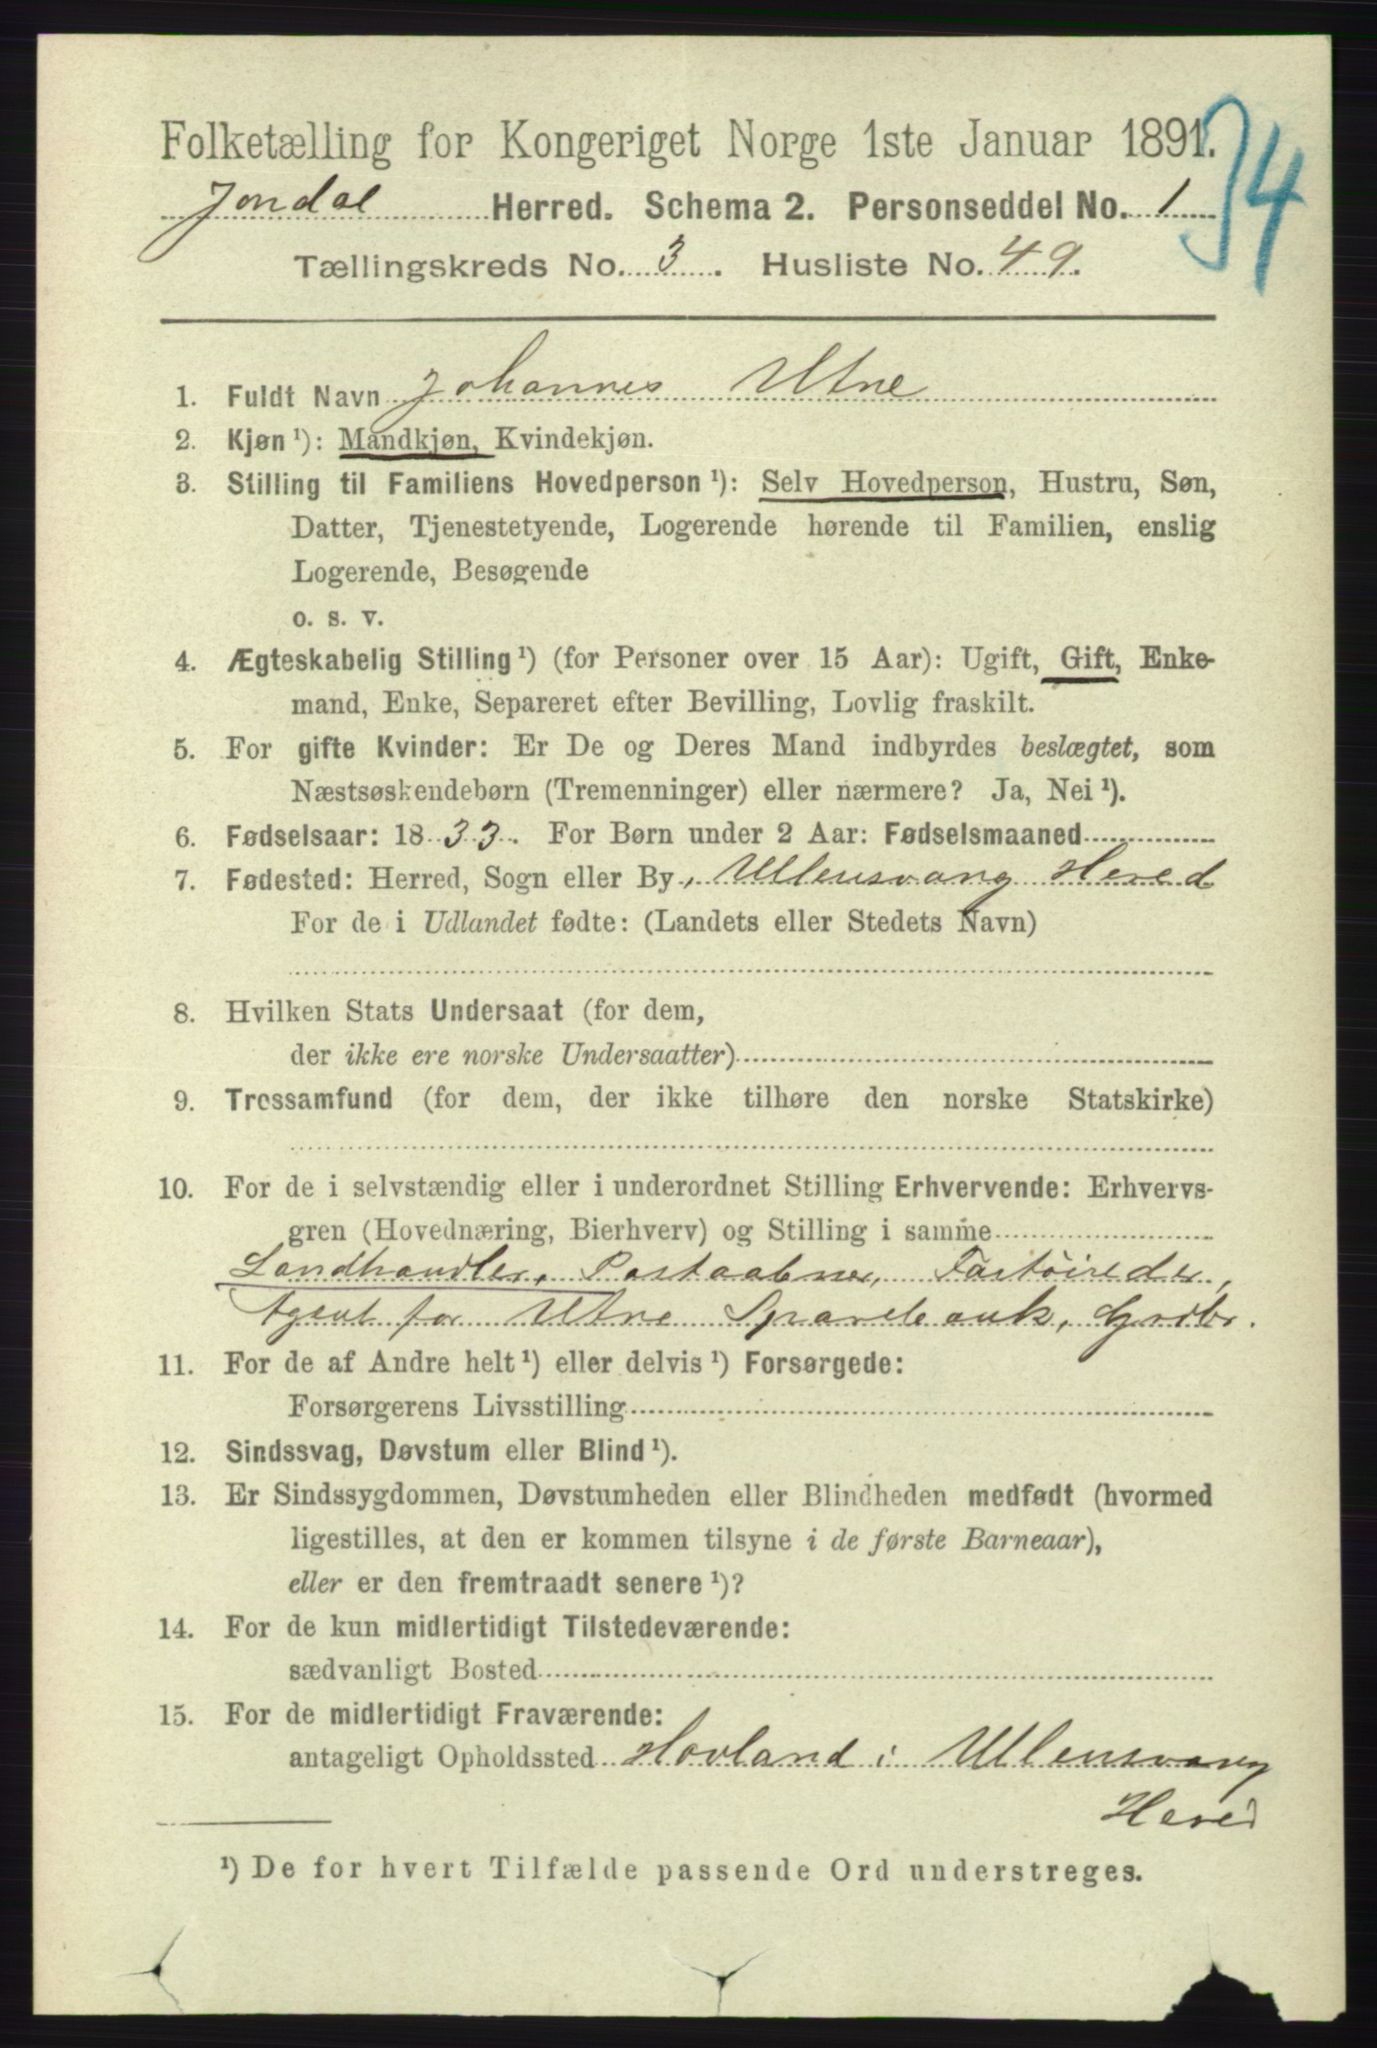 Folketælling for Kongeriget Norge 1ste Januar 1891.
34
Jondal Herred. Schema 2. Personseddel No. 1
Tællingskreds No. 3. Husliste No. 49.
1. Fuldt Navn Johannes Utne
2. Kjøn ¹): Mandkjøn, Kvindekjøn.
3. Stilling til Familiens Hovedperson ¹): Selv Hovedperson, Hustru, Søn,
Datter, Tjenestetyende, Logerende hørende til Familien, enslig
Logerende, Besøgende
o. s. v.
4. Ægteskabelig Stilling ¹) (for Personer over 15 Aar): Ugift, Gift, Enke-
mand, Enke, Separeret efter Bevilling, Lovlig fraskilt.
5. For gifte Kvinder: Er De og Deres Mand indbyrdes beslægtet, som
Næstsøskendebørn (Tremenninger) eller nærmere? Ja, Nei ¹).
6. Fødselsaar: 1833. For Børn under 2 Aar: Fødselsmaaned
7. Fødested: Herred, Sogn eller By, Ullensvang Hered
For de i Udlandet fødte: (Landets eller Stedets Navn)
8. Hvilken Stats Undersaat (for dem,
der ikke ere norske Undersaatter)
9. Trossamfund (for dem, der ikke tilhøre den norske Statskirke)
10. For de i selvstændig eller i underordnet Stilling Erhvervende: Erhvervs-
gren (Hovednæring, Bierhverv) og Stilling i samme
Landhandler, Postaabner, Fartøireder,
Agent for Utne Sparebank, Grdbr.
11. For de af Andre helt ¹) eller delvis ¹) Forsørgede:
Forsørgerens Livsstilling
12. Sindssvag, Døvstum eller Blind ¹).
13. Er Sindssygdommen, Døvstumheden eller Blindheden medfødt (hvormed
ligestilles, at den er kommen tilsyne i de første Barneaar),
eller er den fremtraadt senere ¹)?
14. For de kun midlertidigt Tilstedeværende:
sædvanligt Bosted
15. For de midlertidigt Fraværende:
antageligt Opholdssted Hovland i Ullensvang
Hered
¹) De for hvert Tilfælde passende Ord understreges.